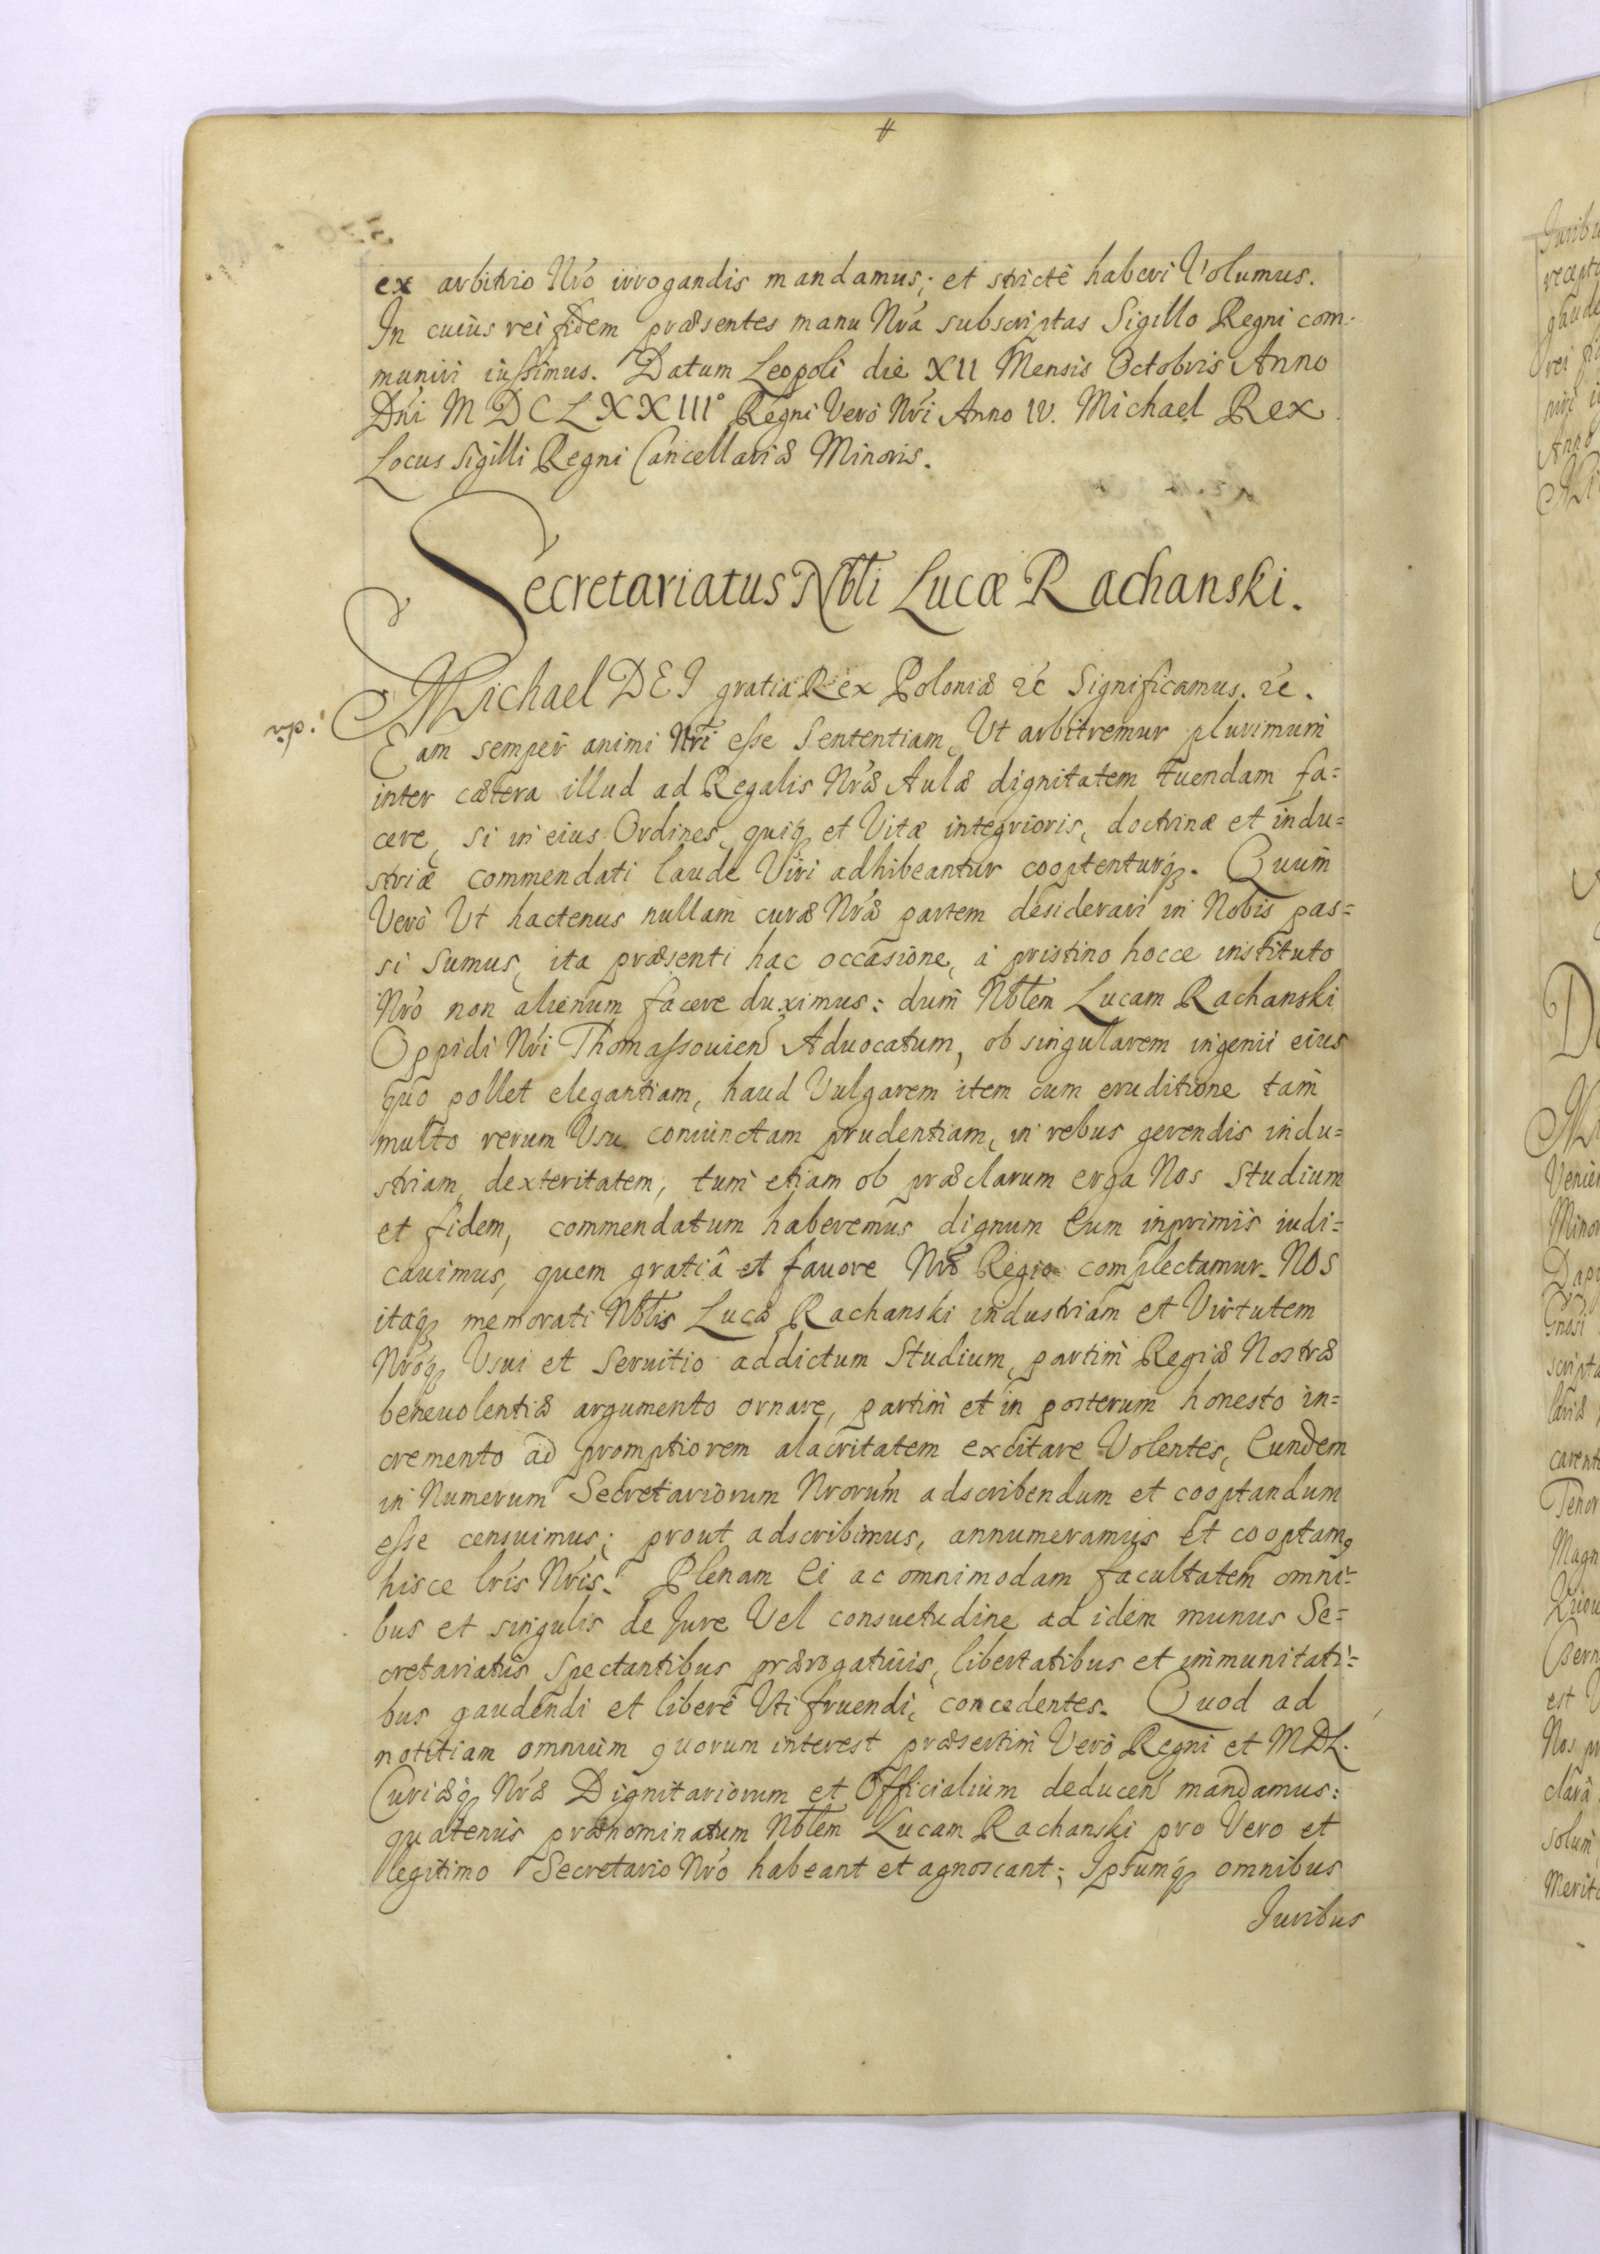 ex arbitrio Nro irrogandis mandamus; et stricte haberi Volumus.
In cuius rei fidem præsentes manu Nra subscriptas Sigillo Regni com-
muniri iussimus. Datum Leopoli die XII Mensis Octobris Anno
Dni MDCLXXIII° Regni Vero Nri Anno IV. Michael Rex
Locus Sigilli Regni Cancellariæ Minoris.
Secretariatus Nbli Lucæ Rachanski.
Michael DEI gratia Rex Poloniæ &c Significamus. &c.
Eam semper animi Nri esse Sententiam, Ut arbitremur plurimum
inter cætera illud ad Regalis Nræ Aulæ dignitatem tuendam fa=
cere, si in eius Ordines, quiq et Vitæ integrioris, doctrinæ et indu=
striæ commendati laude Viri adhibeantur cooptenturq. Quum
Verò Ut hactenus nullam curæ Nræ partem desiderari in Nobis pas=
si sumus, ita præsenti hac occasione, à pristino hocce instituto
Nro non alienum facere duximus: dum Nblem Lucam Rachanski
Oppidi Nri Thomassouien Aduocatum, ob singularem ingenii eius
quo pollet elegantiam, haud Vulgarem item cum eruditione tam
multo rerum Usu coniunctam prudentiam, in rebus gerendis indu=
striam, dexteritatem, tum etiam ob præclarum erga Nos Studium
et fidem, commendatum haberemus dignum Eum inprimis iudi=
cauimus, quem gratiâ et fauore Nro Regio complectamur. NOS
itaq memorati Nblis Lucæ Rachanski industriam et Virtutem
Nroq Usui et Seruitio addictum Studium, partim Regiæ Nostræ
beneuolentiæ argumento ornare, partim et in posterum honesto in=
cremento ad promptiorem alacritatem excitare Volentes, Eundem
in Numerum Secretariorum Nrorum adscribendum et cooptandum
esse censuimus; prout adscribimus, annumeramus et cooptam9
hisce lris Nris. Plenam Ei ac omnimodam facultatem omni=
bus et singulis de Jure Vel consuetudine ad idem munus Se=
cretariatûs spectantibus prærogatiuis, libertatibus et immunitati=
bus gaudendi et liberè Uti fruendi, concedentes. Quod ad
notitiam omnium quorum interest præsertim Verò Regni et MDL.
Curiæq Nræ Dignitariorum et Officialium deducen mandamus:
quatenus prænominatum Nblem Lucam Rachanski pro Vero et
legitimo Secretario Nro habeant et agnoscant; Ipsumq omnibus
Juribus